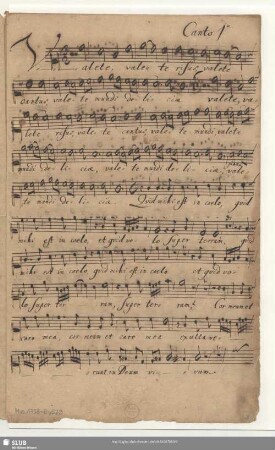 Canto 1º
Valete, valete risus, valete
cantus, valete mundi delicia valete, va-
lete risus, valete cantus, valete mundi, valete
mundi delicia, valete mundi delicia, vale-
te mundi delicia Quid mihi est in caelo, quid
mihi est in caelo, et quid volo super terram, quid
mihi est in caelo, quid mihi est in caelo et quid vo-
lo super terram, super terram? Cor meum et
caro mea, cor meum et caro mea exultave-
runt in Deum vivum
SLUB
Wir führen Wissen.